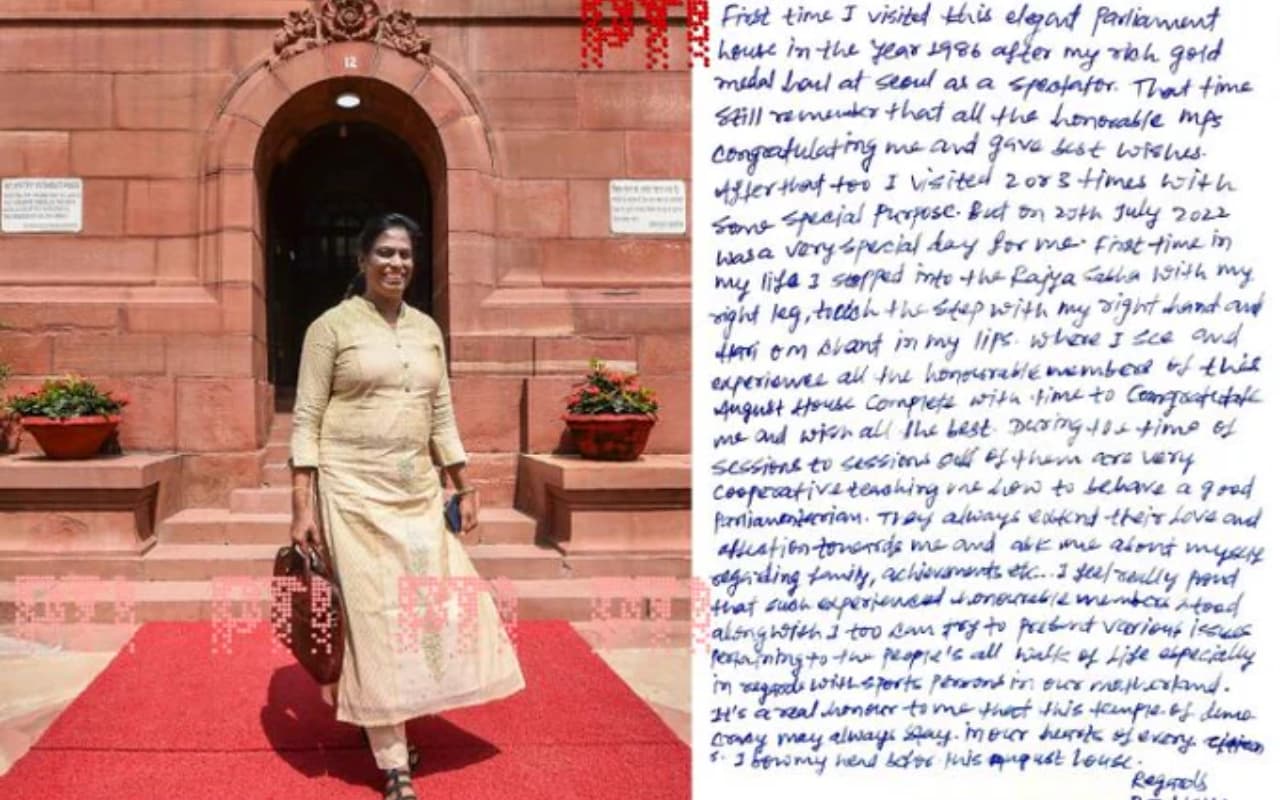 12
PTI
First time I visited this elegant Parliament
house in the Year 1986 after my rich gold
medal haul at seoul as a spectator. That time
still remember that all the honorable MPs
Congratulating me and gave best wishes.
After that too I visited 2 or 3 times with
some special Purpose. But on 20th July 2022
was a very special day for me. First time in
my life I stepped into the Rajya Sabha with my
right leg, touch the step with my right hand and
Hari om chant in my lips. where I see and
experience all the honourable members of this
August House Complete with time to Congratulate
me and wish all the best. During the time of
sessions to sessions all of them are very
Cooperative teaching me how to behave a good
Parliamenterian. They always extend their love and
affection towards me and ask me about myself
regarding family, achievements etc... I feel really proud
that such experienced honourable members stood
along with I too can try to present various issues
Pertaining to the People's all walk of life especially
in regards with sports persons in our motherland.
It's a real honour to me that this temple of demo
cracy may always stay in our hearts of every citizen
s. I bow my head before this august house.
Regards
PTI PTI PTI PTI